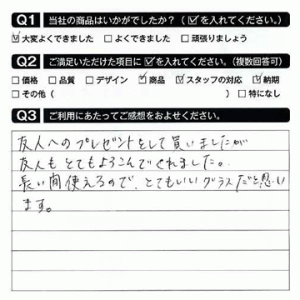 Q1 当社の商品はいかがでしたか？（☑を入れてください。）
☑大変よくできました □よくできました □頑張りましょう
Q2 ご満足いただけた項目に☑を入れてください。（複数回答可）
□価格 □品質 □デザイン ☑商品 ☑スタッフの対応 ☑納期
□その他（ ）□特になし
Q3 ご利用にあたってご感想をおよせください。
友人へのプレゼントをして買いましたが
友人もとてもよろこんでくれました。
長い間使えるので、とてもいいグラスだと思い
ます。